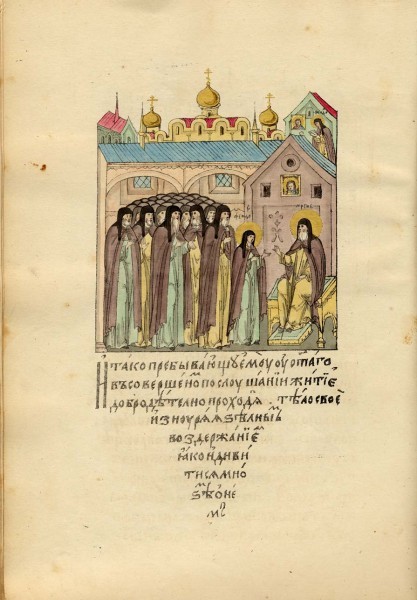 И тако пребывающу емоу оу ст҃аго
въ совершеⷩно послоушанїи житїе
добродѣтелно проходѧ. тѣло своѐ
изноурѧѧ ѕѣлныⷨ
воздержанїеⷨ
ꙗко и диви
тисѧ мно
ѕѣ ѡ не
мъ